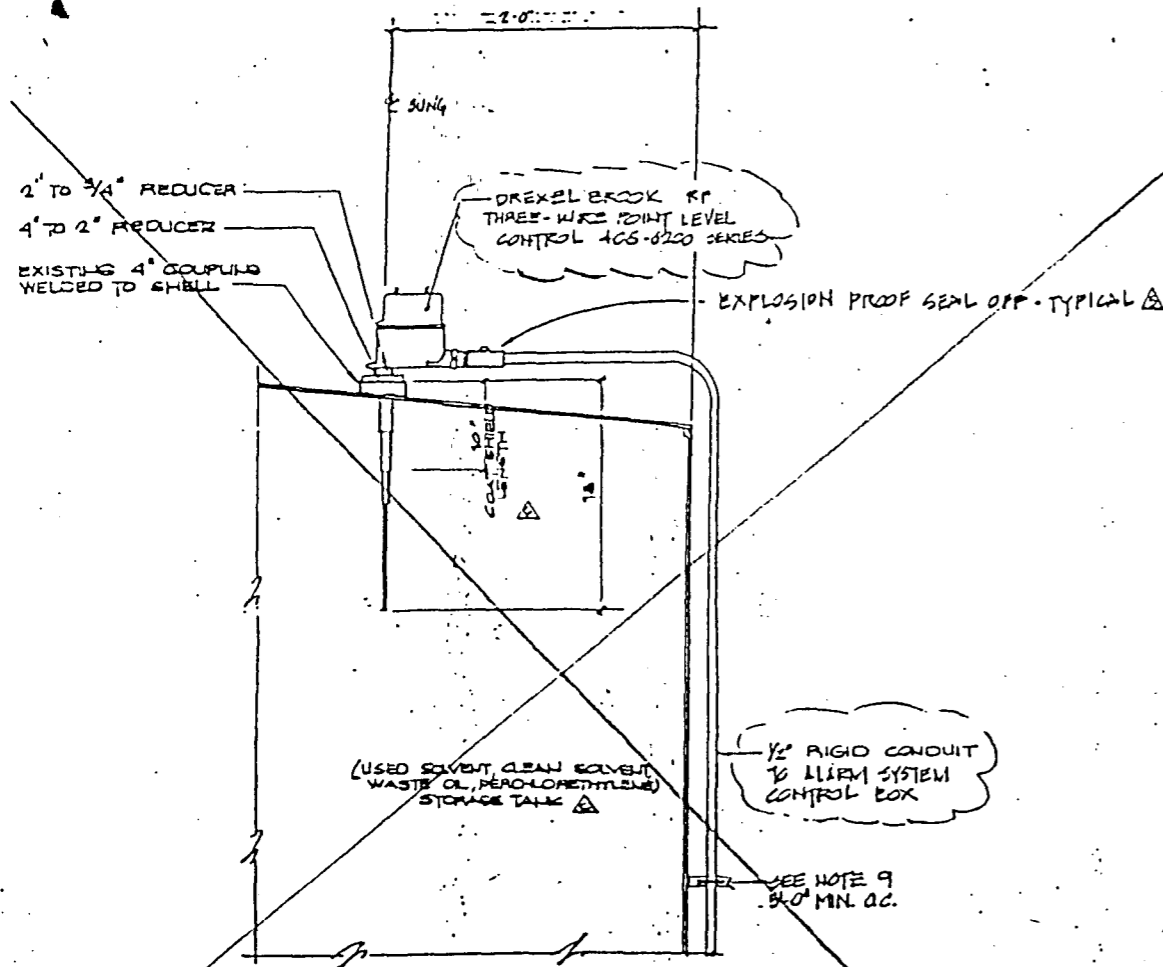 2'-0"
2" TO 3/4" REDUCER
4" TO 2" REDUCER
EXISTING 4" COUPLING
WELDED TO SHELL
DREXEL BROOK RF
THREE-WIRE POINT LEVEL
CONTROL 405-8200 SERIES
EXPLOSION PROOF SEAL OFF - TYPICAL
COAT SHIELD
LENGTH
18"
(USED SOLVENT, CLEAN SOLVENT,
WASTE OIL, PERCHLORETHYLENE)
STORAGE TANK
1/2" RIGID CONDUIT
TO ALARM SYSTEM
CONTROL BOX
SEE NOTE 9
5'-0" MIN. O.C.